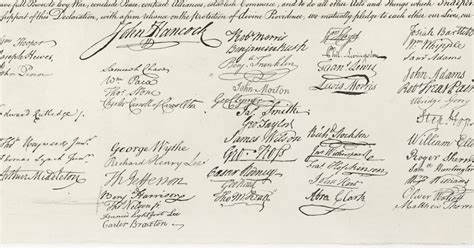 full Power to levy War, conclude Peace, contract Alliances, establish Commerce, and to do all other Acts and Things which
support of this Declaration, with a firm reliance on the protection of divine Providence, we mutually pledge to each other our Lives,
Wm Hooper
Joseph Hewes,
John Penn
Edward Rutledge /.
Thos Heyward Junr.
Thomas Lynch Junr.
Arthur Middleton
John Hancock
Samuel Chase
Wm Paca
Thos Stone
Charles Carroll of Carrollton
George Wythe
Richard Henry Lee
Th Jefferson
Benj Harrison
Thos Nelson jr.
Francis Lightfoot Lee
Carter Braxton
Robt Morris
Benjamin Rush
Benj Franklin
John Morton
Geo Clymer
Jas Smith
Geo Taylor
James Wilson
Geo. Ross
Caesar Rodney
Geo Read
Tho M:Kean
Phil. Livingston
Frans Lewis
Lewis Morris
Richd Stockton
Jno Witherspoon
Fras Hopkinson
John Hart
Abra Clark
Josiah Bartlett
Wm Whipple
Saml Adams
John Adams
Robt Treat Paine
Elbridge Gerry
Step Hop
William Ellery
Roger Sherman
Saml Huntington
Wm Williams
Oliver Wolcott
Matthew Thornton